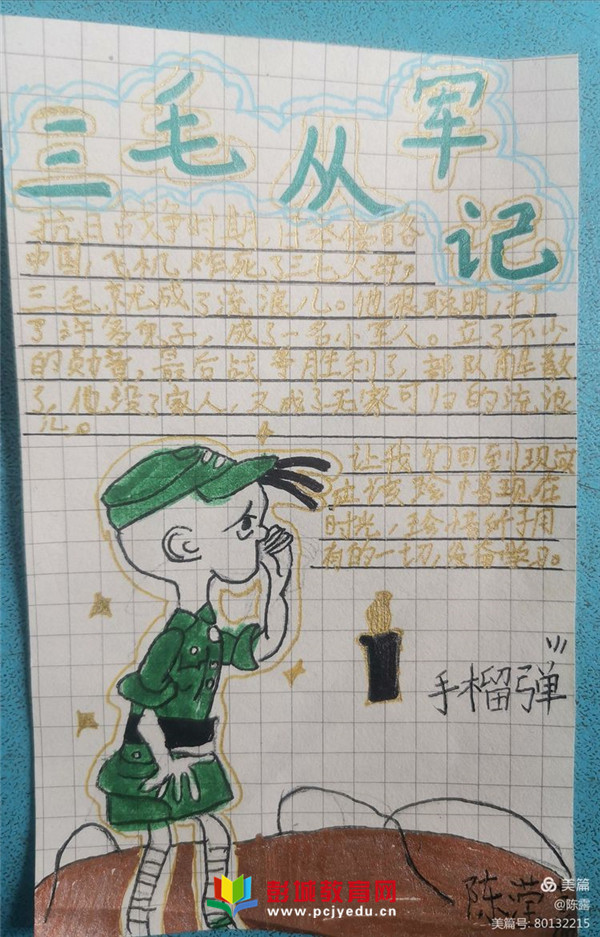 三毛从军记
抗日战争时期,日本侵略
中国,飞机炸死了三毛父母,
三毛就成了流浪儿。他很聪明,打
了许多鬼子,成了一名小军人。立了不少
的勋章,最后战争胜利了,部队解散
了,他没了家人,又成了无家可归的流浪
儿。
让我们回到现实
应该珍惜现在
时光,珍惜所拥
有的一切,发奋学习。
手榴弹
陈
彭城教育网
www.pcjyedu.cn
美篇
@陈露
美篇号: 80132215